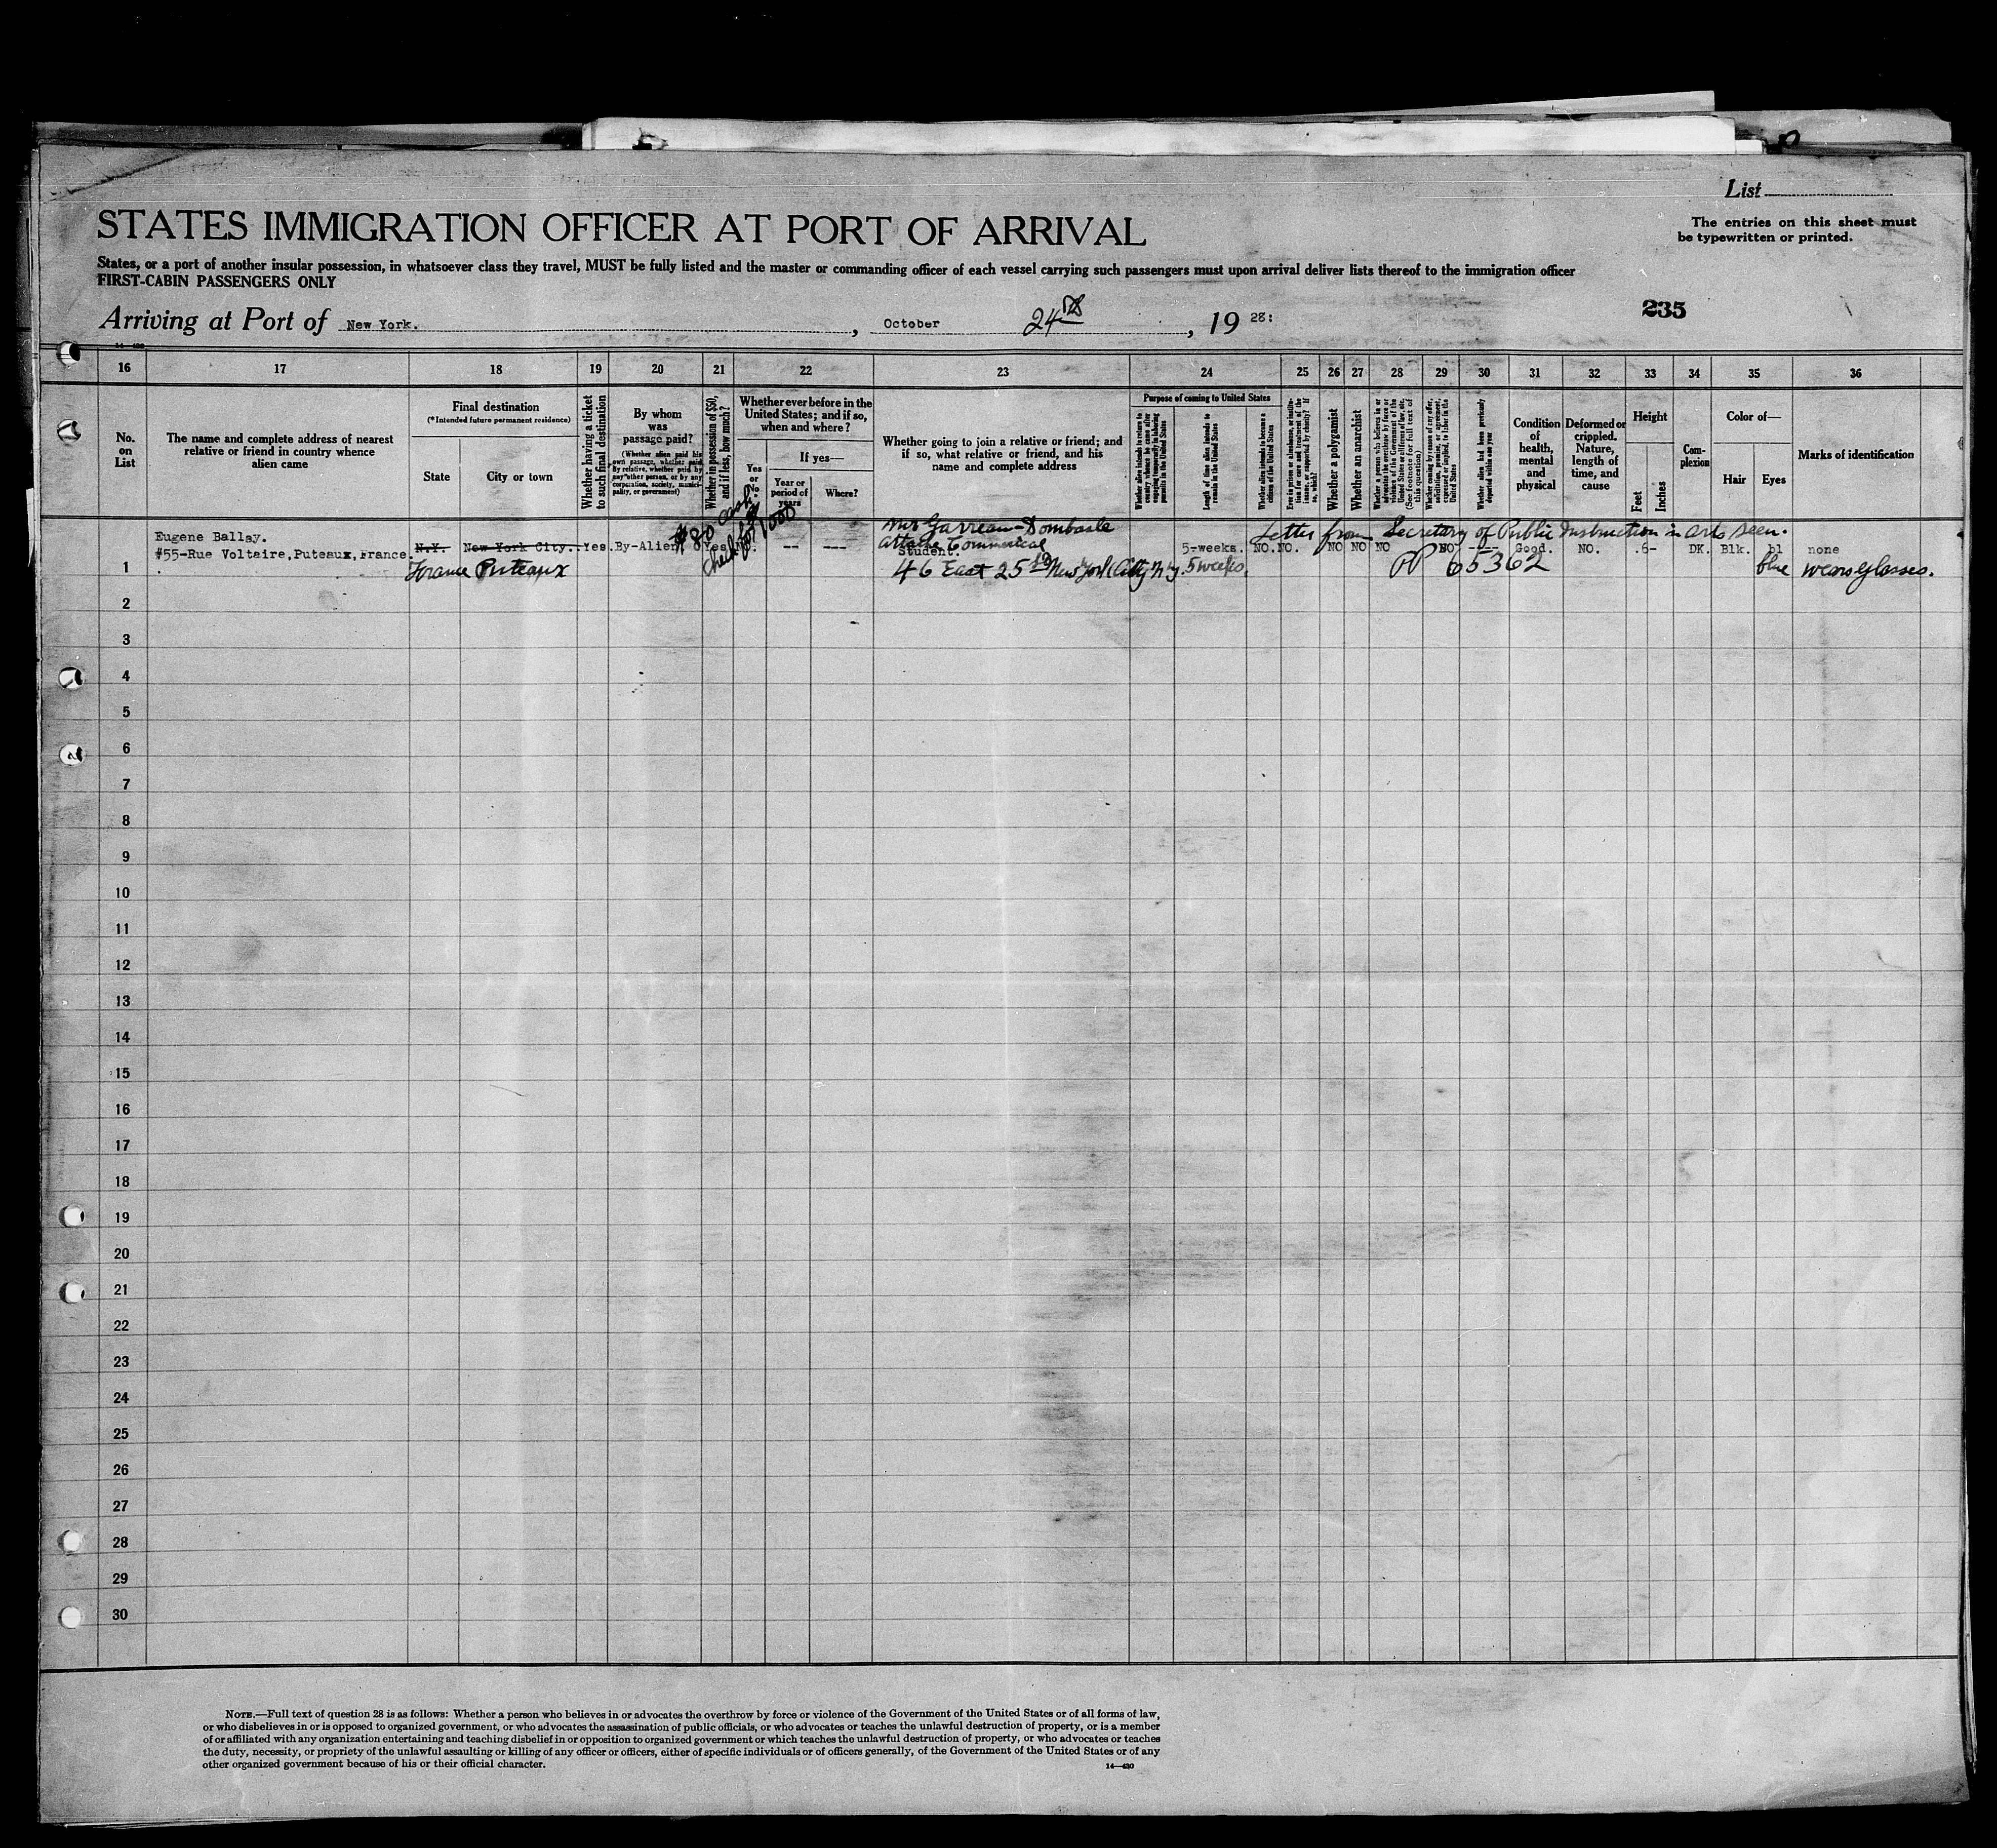 List
STATES IMMIGRATION OFFICER AT PORT OF ARRIVAL
The entries on this sheet must
be typewritten or printed.
States, or a port of another insular possession, in whatsoever class they travel, MUST be fully listed and the master or commanding officer of each vessel carrying such passengers must upon arrival deliver lists thereof to the immigration officer
FIRST-CABIN PASSENGERS ONLY
235
Arriving at Port of New York. , October 24th , 19 28:
14-430
16 17 18 19 20 21 22 23 24 25 26 27 28 29 30 31 32 33 34 35 36
No. on List
The name and complete address of nearest
relative or friend in country whence
alien came
Final destination
(*Intended future permanent residence)
State
City or town
Whether having a ticket
to such final destination
By whom
was
passage paid?
(Whether alien paid his
own passage, whether paid
by relative, whether paid by
any other person, or by any
corporation, society, munici-
pality, or government)
Whether in possession of $50,
and if less, how much?
Whether ever before in the
United States; and if so,
when and where?
Yes or No
If yes—
Year or
period of
years
Where?
Whether going to join a relative or friend; and
if so, what relative or friend, and his
name and complete address
Purpose of coming to United States
Whether alien intends to return to
country whence he came after
engaging temporarily in laboring
pursuits in the United States
Length of time alien intends to
remain in the United States
Whether alien intends to become a
citizen of the United States
Ever in prison or almshouse, or institu-
tion for care and treatment of the
insane, or supported by charity? If
so, which?
Whether a polygamist
Whether an anarchist
Whether a person who believes in or
advocates the overthrow by force or
violence of the Government of the
United States or all forms of law, etc.
(See footnote for full text of
this question)
Whether coming by reason of any offer,
solicitation, promise, or agreement,
expressed or implied, to labor in the
United States
Whether alien had been previously
deported within one year
Condition
of
health,
mental
and
physical
Deformed or
crippled.
Nature,
length of
time, and
cause
Height
Feet
Inches
Com-
plexion
Color of—
Hair
Eyes
Marks of identification
$80 cash
check for $1,000
Mr Garreau-Dombasle
Letter from Secretary of Public Instruction in arts seen.
Eugene Ballay.
Attache Commerical
#55-Rue Voltaire,Puteaux,France. N.Y. New York City. Yes. By-Alien. Yes -- --- Student. 5-weeks. NO. NO. NO NO NO NO --- Good. NO. .6- DK. Blk. bl none
1 France Puteaux 46 East 25th New York City N.Y. 5 weeks. 65362 blue wears glasses.
2
3
4
5
6
7
8
9
10
11
12
13
14
15
16
17
18
19
20
21
22
23
24
25
26
27
28
29
30
NOTE.—Full text of question 28 is as follows: Whether a person who believes in or advocates the overthrow by force or violence of the Government of the United States or of all forms of law,
or who disbelieves in or is opposed to organized government, or who advocates the assassination of public officials, or who advocates or teaches the unlawful destruction of property, or is a member
of or affiliated with any organization entertaining and teaching disbelief in or opposition to organized government or which teaches the unlawful destruction of property, or who advocates or teaches
the duty, necessity, or propriety of the unlawful assaulting or killing of any officer or officers, either of specific individuals or of officers generally, of the Government of the United States or of any
other organized government because of his or their official character.
14—430